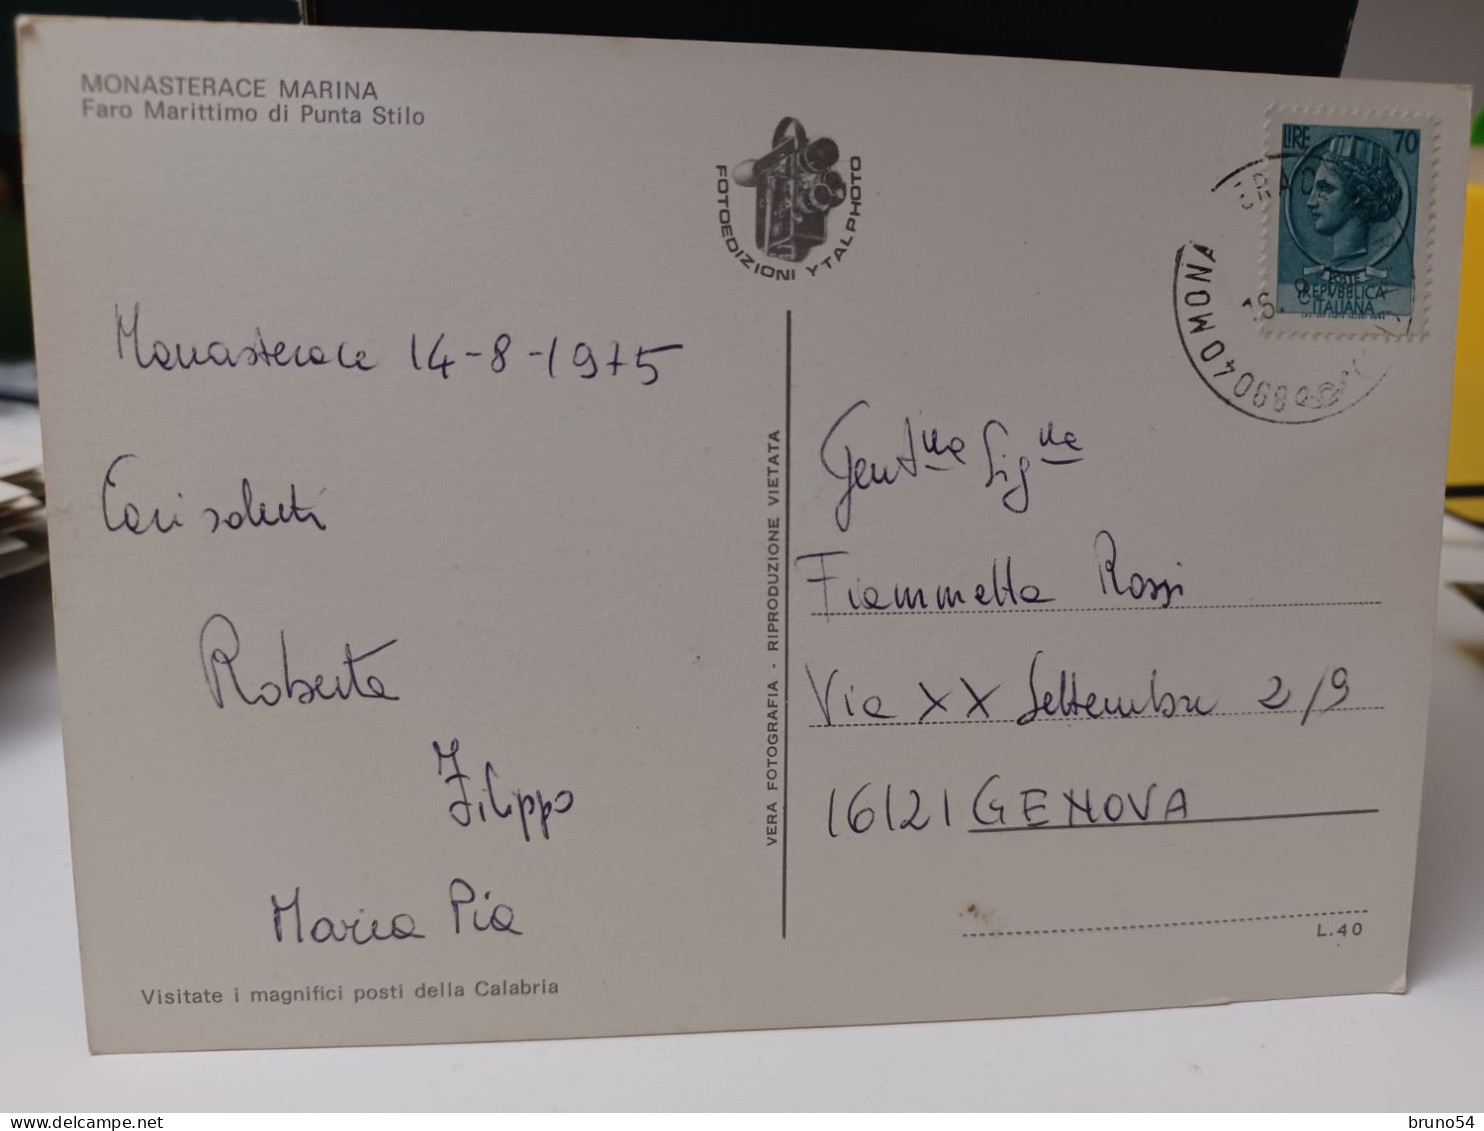 MONASTERACE MARINA
Faro Marittimo di Punta Stilo
FOTOEDIZIONI YTALPHOTO
LIRE 70
POSTE
REPVBBLICA
ITALIANA
89040 MONA
Monasterace 14-8-1975
Cari saluti
Roberta
Filippo
Maria Pia
Visitate i magnifici posti della Calabria
VERA FOTOGRAFIA - RIPRODUZIONE VIETATA
Gent.ma Sig.na
Fiammetta Rossi
Via XX Settembre 2/9
16121 GENOVA
L.40
www.delcampe.net
bruno54